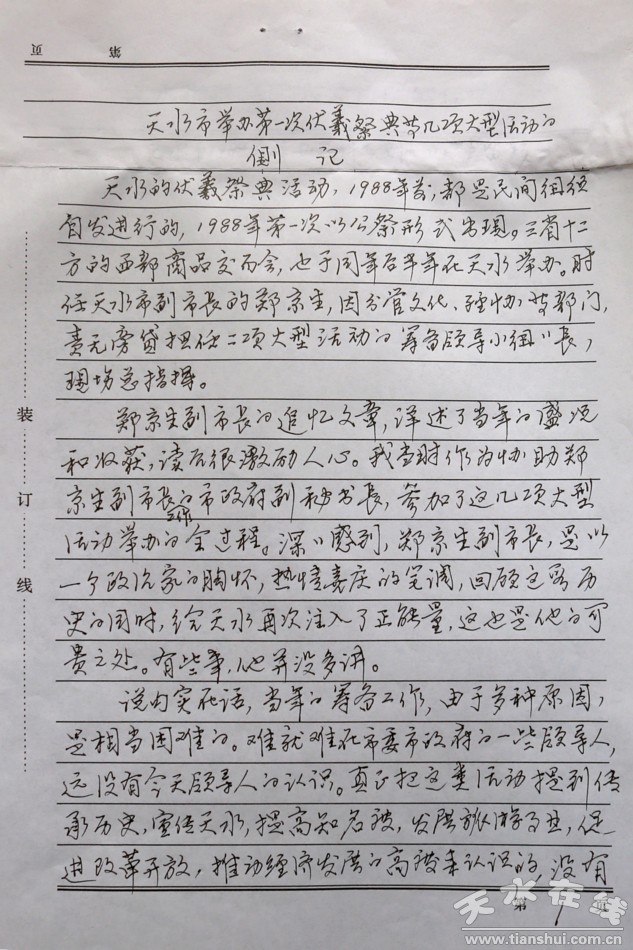 第 页
天水市举办第一次伏羲祭典等几项大型活动的
侧记
天水的伏羲祭典活动，1988年前，都是民间组织
自发进行的，1988年第一次以公祭形式出现。三省十二
方的西部商品交易会，也于同年后半年在天水举办。时
任天水市副市长的郑京生，因分管文化、经协等部门，
责无旁贷担任二项大型活动的筹备领导小组组长，
现场总指挥。
郑京生副市长的追忆文章，详述了当年的盛况
和收获，读后很激励人心。我当时作为协助郑
京生副市长工作的市政府副秘书长，参加了这几项大型
活动举办的全过程。深深感到，郑京生副市长，是以
一个政治家的胸怀，热情喜庆的笔调，回顾这段历
史的同时，给天水再次注入了正能量，这也是他的可
贵之处。有些事，他并没多讲。
说句实在话，当年的筹备工作，由于多种原因，
是相当困难的。难就难在市委市政府的一些领导人，
远没有今天领导人的认识。真正把这类活动提到传
承历史，宣传天水，提高知名度，发展旅游产业，促
进改革开放，推动经济发展的高度来认识的，没有
装
订
线
第 1 页
天水在线
www.tianshui.com.cn